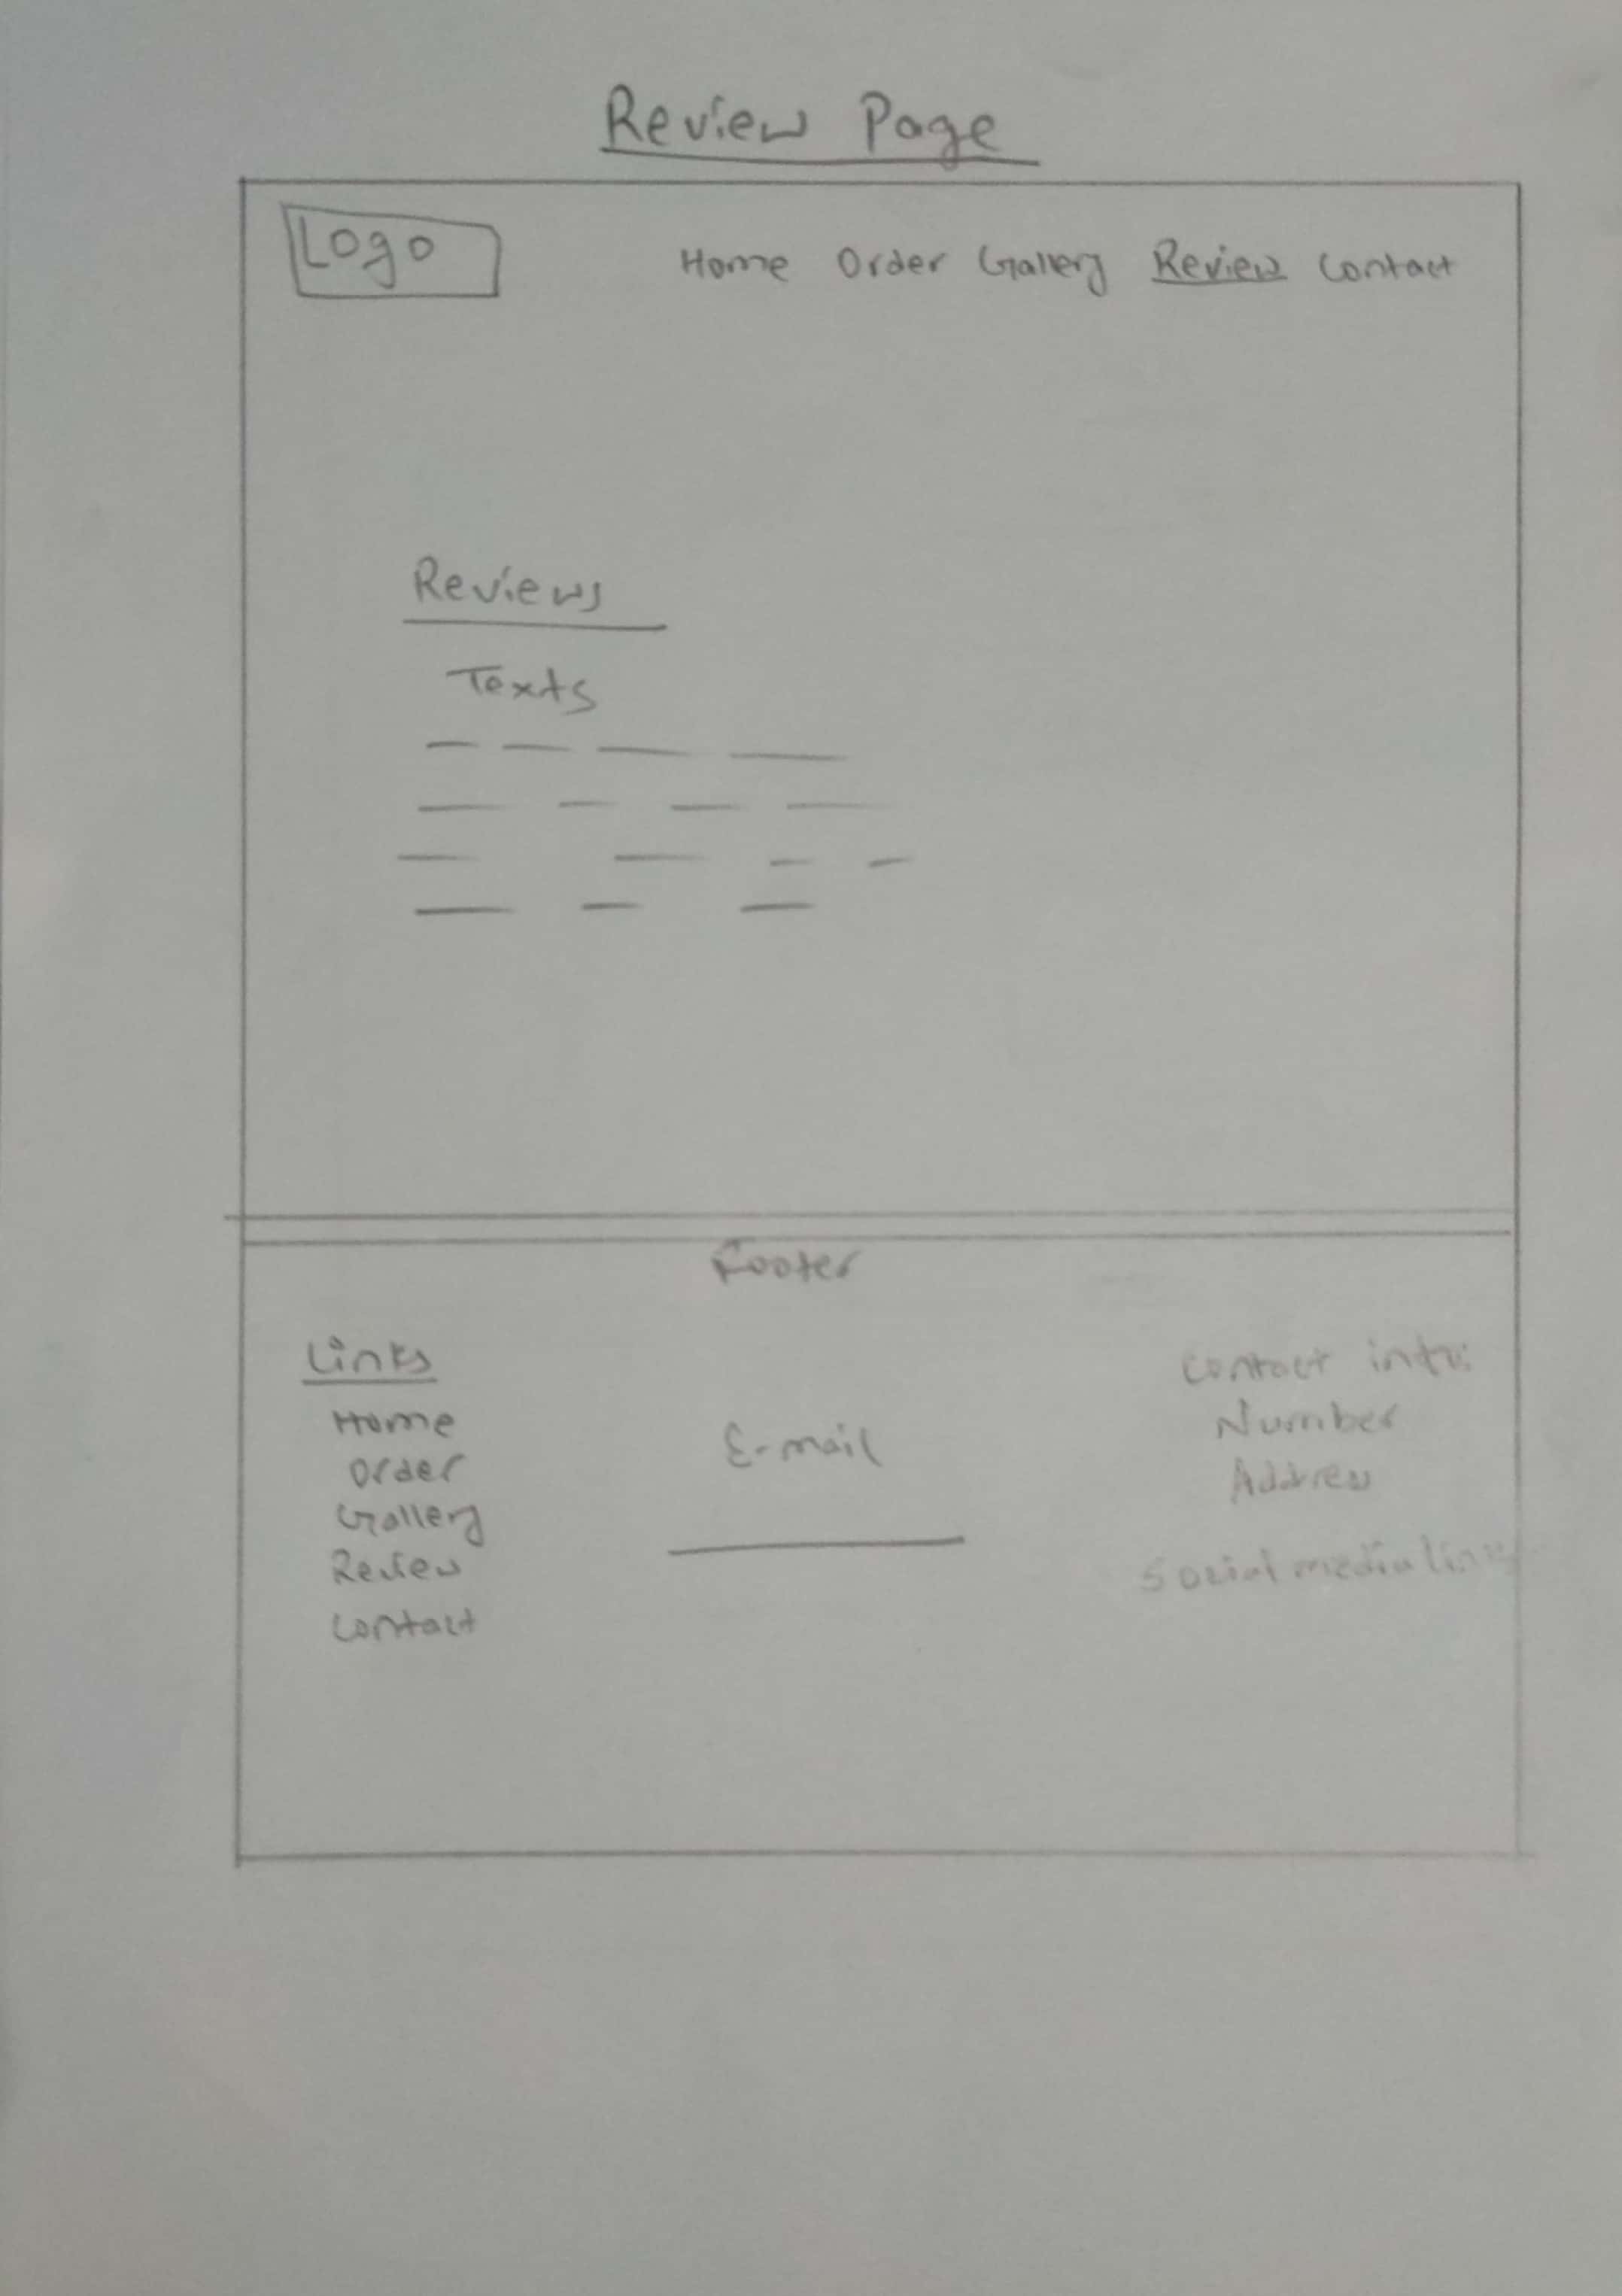 Review Page
Logo
Home Order Gallery Review Contact
Reviews
Texts
Footer
Links
Home
Order
Gallery
Review
Contact
E-mail
Contact info:
Number
Address
Social media links